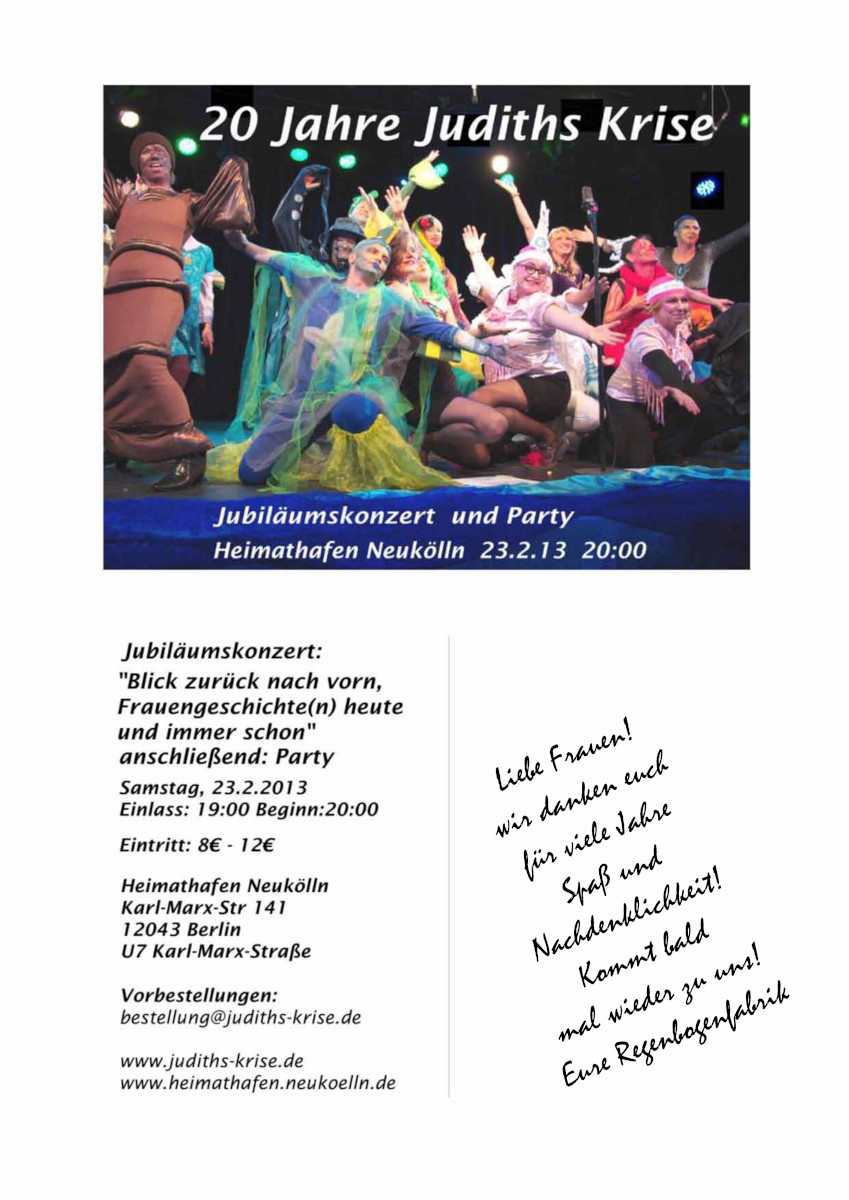 20 Jahre Judiths Krise
Jubiläumskonzert und Party
Heimathafen Neukölln 23.2.13 20:00
Jubiläumskonzert:
"Blick zurück nach vorn,
Frauengeschichte(n) heute
und immer schon"
anschließend: Party
Samstag, 23.2.2013
Einlass: 19:00 Beginn:20:00
Eintritt: 8€ - 12€
Heimathafen Neukölln
Karl-Marx-Str 141
12043 Berlin
U7 Karl-Marx-Straße
Vorbestellungen:
bestellung@judiths-krise.de
www.judiths-krise.de
www.heimathafen.neukoelln.de
Liebe Frauen!
wir danken euch
für viele Jahre
Spaß und
Nachdenklichkeit!
Kommt bald
mal wieder zu uns!
Eure Regenbogenfabrik